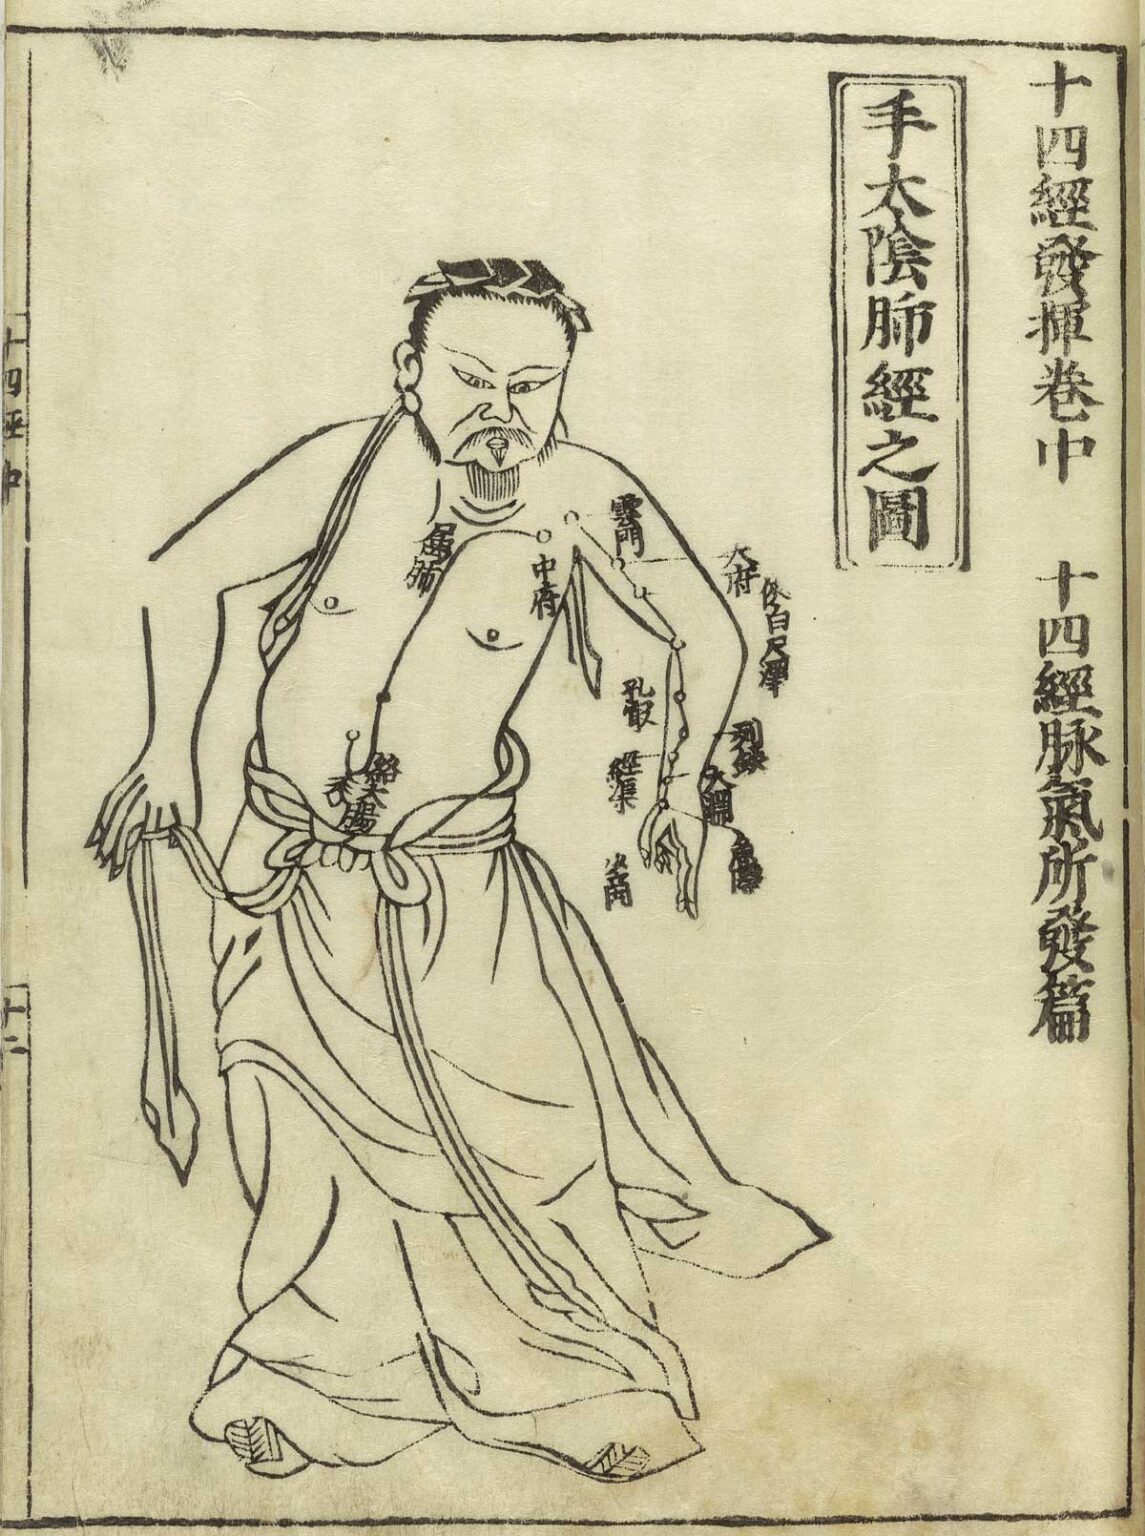 十四經發揮卷中　十四經脉氣所發篇
手太陰肺經之圖
俠白尺澤
天府
列缺
太淵
魚際
雲門
孔最
經渠
少商
中府
屬肺
絡大腸
十四經中
十二